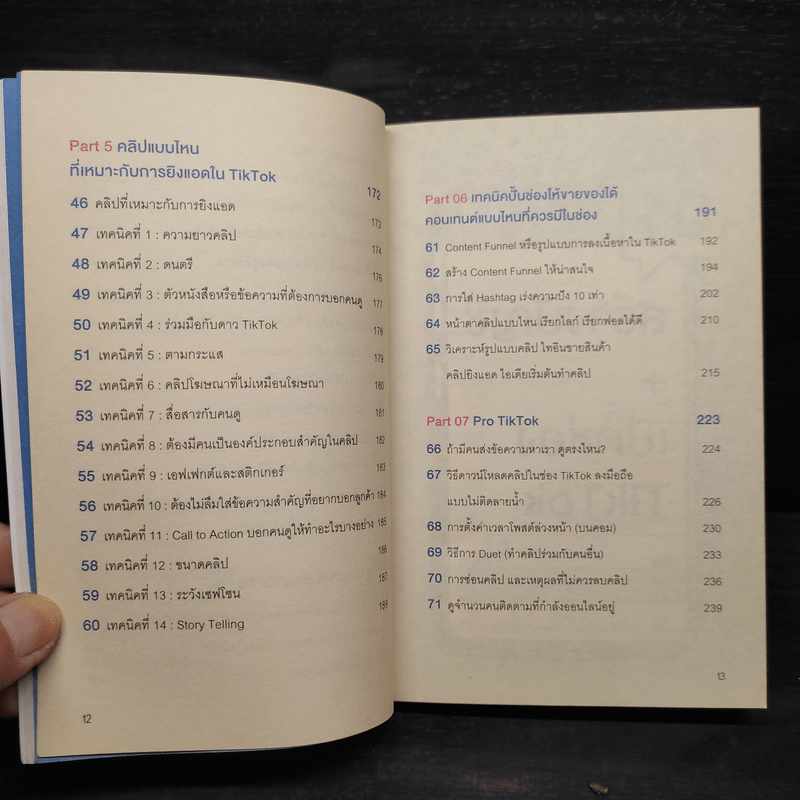 Part 5 คลิปแบบไหน
ที่เหมาะกับการยิงแอดใน TikTok 172
46 คลิปที่เหมาะกับการยิงแอด 173
47 เทคนิคที่ 1 : ความยาวคลิป 174
48 เทคนิคที่ 2 : ดนตรี 176
49 เทคนิคที่ 3 : ตัวหนังสือหรือข้อความที่ต้องการบอกคนดู 177
50 เทคนิคที่ 4 : ร่วมมือกับดาว TikTok 178
51 เทคนิคที่ 5 : ตามกระแส 179
52 เทคนิคที่ 6 : คลิปโฆษณาที่ไม่เหมือนโฆษณา 180
53 เทคนิคที่ 7 : สื่อสารกับคนดู 181
54 เทคนิคที่ 8 : ต้องมีคนเป็นองค์ประกอบสำคัญในคลิป 182
55 เทคนิคที่ 9 : เอฟเฟกต์และสติกเกอร์ 183
56 เทคนิคที่ 10 : ต้องไม่ลืมใส่ข้อความสำคัญที่อยากบอกลูกค้า 184
57 เทคนิคที่ 11 : Call to Action บอกคนดูให้ทำอะไรบางอย่าง 185
58 เทคนิคที่ 12 : ขนาดคลิป 186
59 เทคนิคที่ 13 : ระวังเซฟโซน 187
60 เทคนิคที่ 14 : Story Telling 189
12
Part 06 เทคนิคปั้นช่องให้ขายของได้
คอนเทนต์แบบไหนที่ควรมีในช่อง 191
61 Content Funnel หรือรูปแบบการลงเนื้อหาใน TikTok 192
62 สร้าง Content Funnel ให้น่าสนใจ 194
63 การใส่ Hashtag เร่งความปัง 10 เท่า 202
64 หน้าตาคลิปแบบไหน เรียกไลก์ เรียกฟอลได้ดี 210
65 วิเคราะห์รูปแบบคลิป ไทอินขายสินค้า
คลิปยิงแอด ไอเดียเริ่มต้นทำคลิป 215
Part 07 Pro TikTok 223
66 ถ้ามีคนส่งข้อความหาเรา ดูตรงไหน? 224
67 วิธีดาวน์โหลดคลิปในช่อง TikTok ลงมือถือ
แบบไม่ติดลายน้ำ 226
68 การตั้งค่าเวลาโพสต์ล่วงหน้า (บนคอม) 230
69 วิธีการ Duet (ทำคลิปร่วมกับคนอื่น) 233
70 การซ่อนคลิป และเหตุผลที่ไม่ควรลบคลิป 236
71 ดูจำนวนคนติดตามที่กำลังออนไลน์อยู่ 239
13